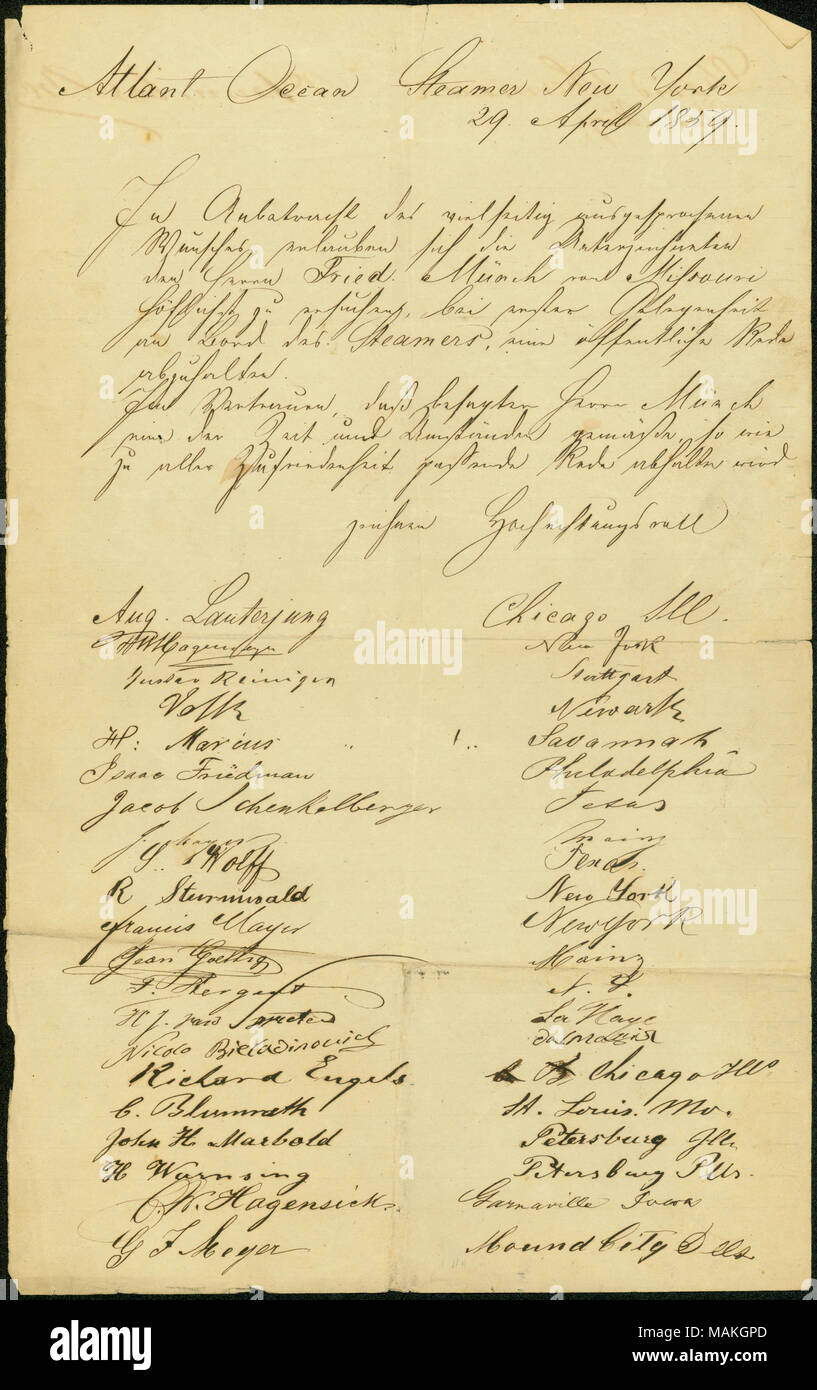 Atlant Ocean Steamer New York
29. April 1859.
In Anbetracht des vielseitig ausgesprochenen
Wunsches erlauben sich die Unterzeichneten
den Herrn Fried. Münch von Missouri
höflichst zu ersuchen, bei erster Gelegenheit
an Bord des Steamers, eine öffentliche Rede
abzuhalten.
Im Vertrauen, daß besagter Herr Münch
eine der Zeit und Umständen gemäße, so wie
zu aller Zufriedenheit passende Rede abhalten wird
zeichnen Hochachtungsvoll
Aug. Lauterjung Chicago Ill.
New York
Gustav Reiniger Stuttgart
Volk Newark
H: Marcus Savannah
Isaac Friedman Philadelphia
Jacob Schenkelberger Texas
Mainz
Wolff Texas.
R Sturmwald New York
Francis Mayer New York
Jean Mainz
F. Hergert N. Y.
H J. van La Haye
Nicolo Dalmazia
Richard Engels. Chicago Ills
C. Blumrath St. Louis. Mo.
John H Marbold Petersburg Ill.
H Warnsing Petersburg Ills.
C. W. Hagensick. Garnaville Iowa
G F Meyer Mound City Ills
alamy
alamy
Image ID: MAKGPD
www.alamy.com